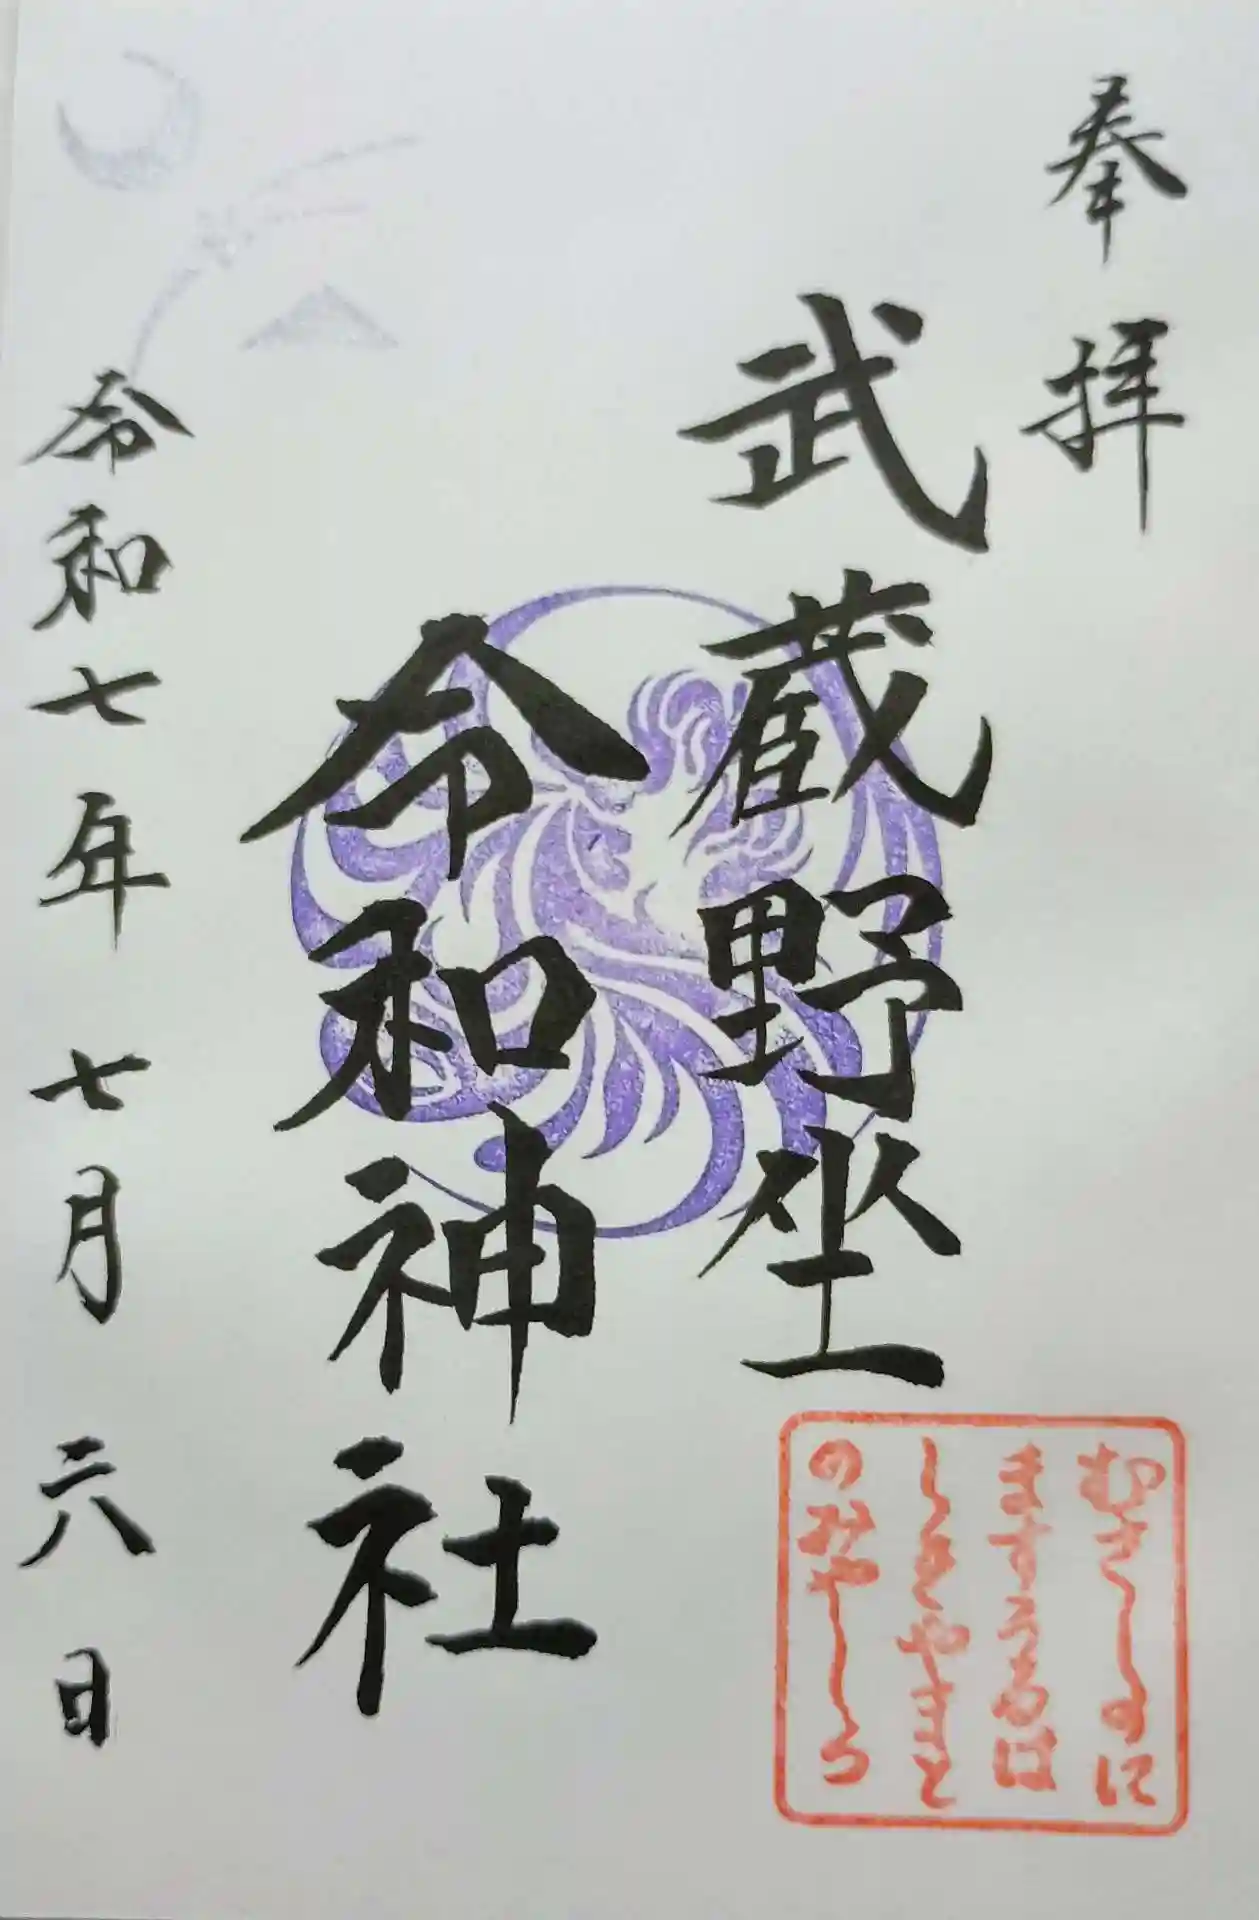 奉拝
武蔵野坐
令和神社
むさしのに
ますうるは
しきやまと
のみやしろ
令和七年七月六日